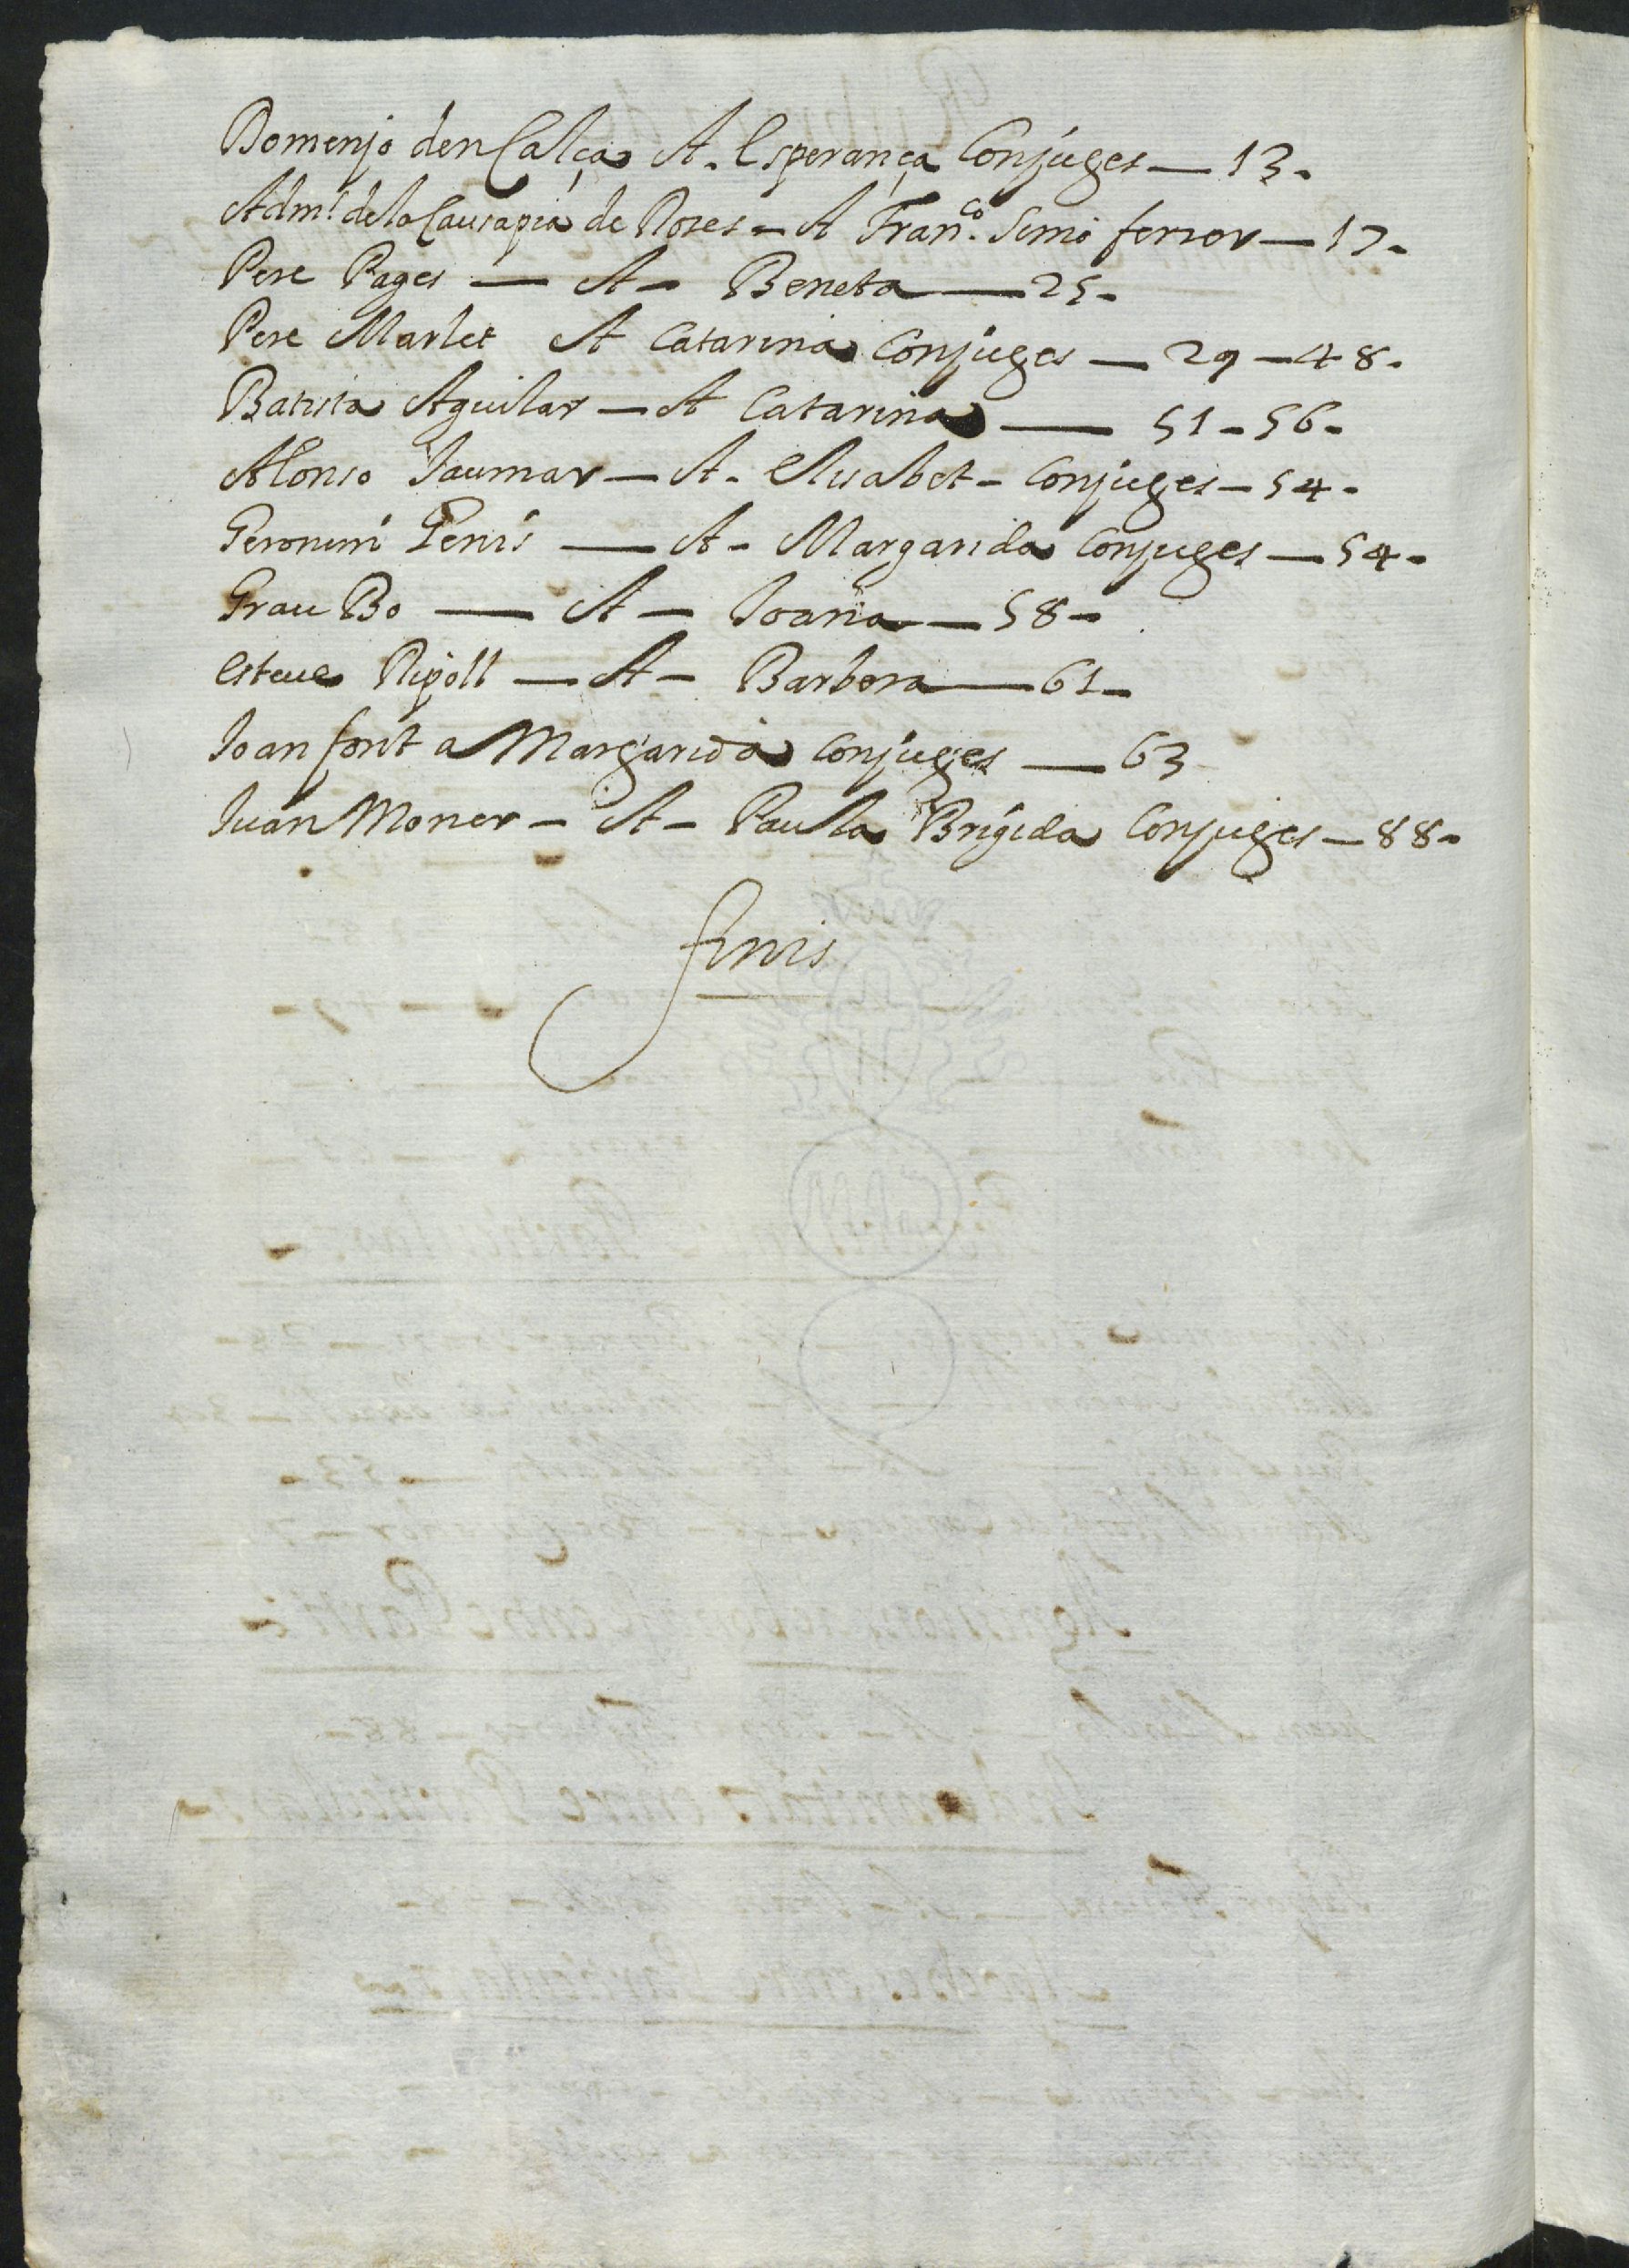 Domenjo den Calça A. Esperança Conjuges — 13.
Adm.ʳ de la Causa pia de Roses - A Fran.co Simó ferrer — 17.
Pere Pages — A - Beneta — 25.
Pere Marlet A Catarina Conjuges — 29 — 48.
Batista Aguilar — A Catarina — 51 - 56.
Alonso Jaumar — A. Elisabet - Conjuges - 54.
Geronim Genis — A - Margarida Conjuges — 54.
Grau Bo — A — Joana — 58 -
Esteve Ripoll — A - Barbera — 61 -
Joan font a Margarida Conjuges — 63
Juan Moner - A - Paula Brigida Conjuges — 88.
finis